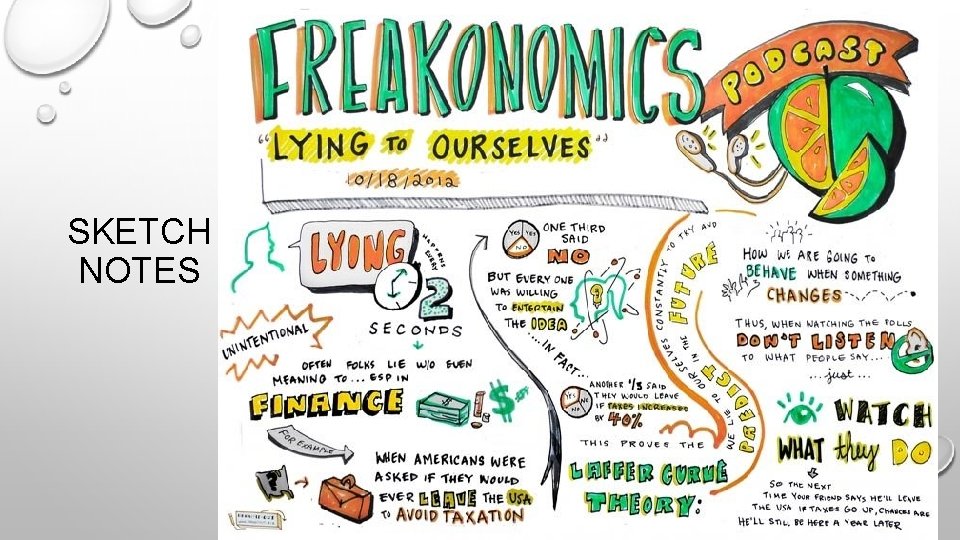 SKETCH
NOTES
FREAKONOMICS
PODCAST
"LYING TO OURSELVES"
10/18/2012
LYING
HAPPENS
EVERY
2
SECONDS
UNINTENTIONAL
OFTEN FOLKS LIE W/O EVEN
MEANING TO... ESP IN
FINANCE
$
FOR EXAMPLE
?
WHEN AMERICANS WERE
ASKED IF THEY WOULD
EVER LEAVE THE USA
TO AVOID TAXATION
YES YES
NO
ONE THIRD
SAID
NO
BUT EVERY ONE
WAS WILLING
TO ENTERTAIN
THE IDEA
?
....IN FACT...
YES NO
NO
ANOTHER 1/3 SAID
THEY WOULD LEAVE
IF TAXES INCREASED
BY 40%
THIS PROVES THE
LAFFER CURVE
THEORY:
WE LIE TO OURSELVES CONSTANTLY TO TRY AND
PREDICT IN THE FUTURE
HOW WE ARE GOING TO
BEHAVE WHEN SOMETHING
CHANGES
THUS, WHEN WATCHING THE POLLS
DON'T LISTEN
TO WHAT PEOPLE SAY...
...just...
WATCH
WHAT they DO
SO THE NEXT
TIME YOUR FRIEND SAYS HE'LL LEAVE
THE USA IF TAXES GO UP, CHANCES ARE
HE'LL STILL BE HERE A YEAR LATER